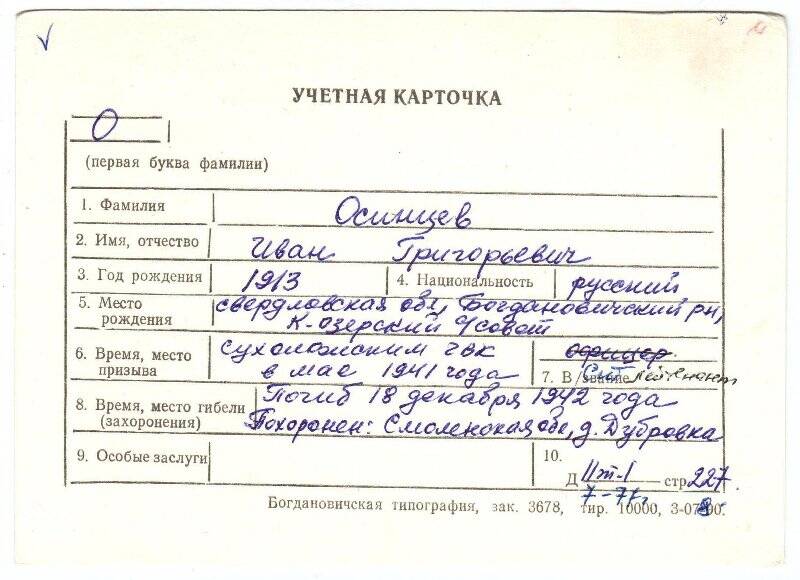 УЧЕТНАЯ КАРТОЧКА
О
(первая буква фамилии)
1. Фамилия Осинцев
2. Имя, отчество Иван Григорьевич
3. Год рождения 1913 4. Национальность русский
5. Место рождения свердловская обл, Богдановичский рн,
К-озерский с/совет
6. Время, место призыва Сухоложским гвк
в мае 1941 года
офицер
7. В/звание лейтенант
8. Время, место гибели (захоронения) Погиб 18 декабря 1942 года
Похоронен: Смоленская обл, д. Дубровка
9. Особые заслуги
10.
Д IIт-1 стр 227
Богдановичская типография, зак. 3678, тир. 10000, 3-07